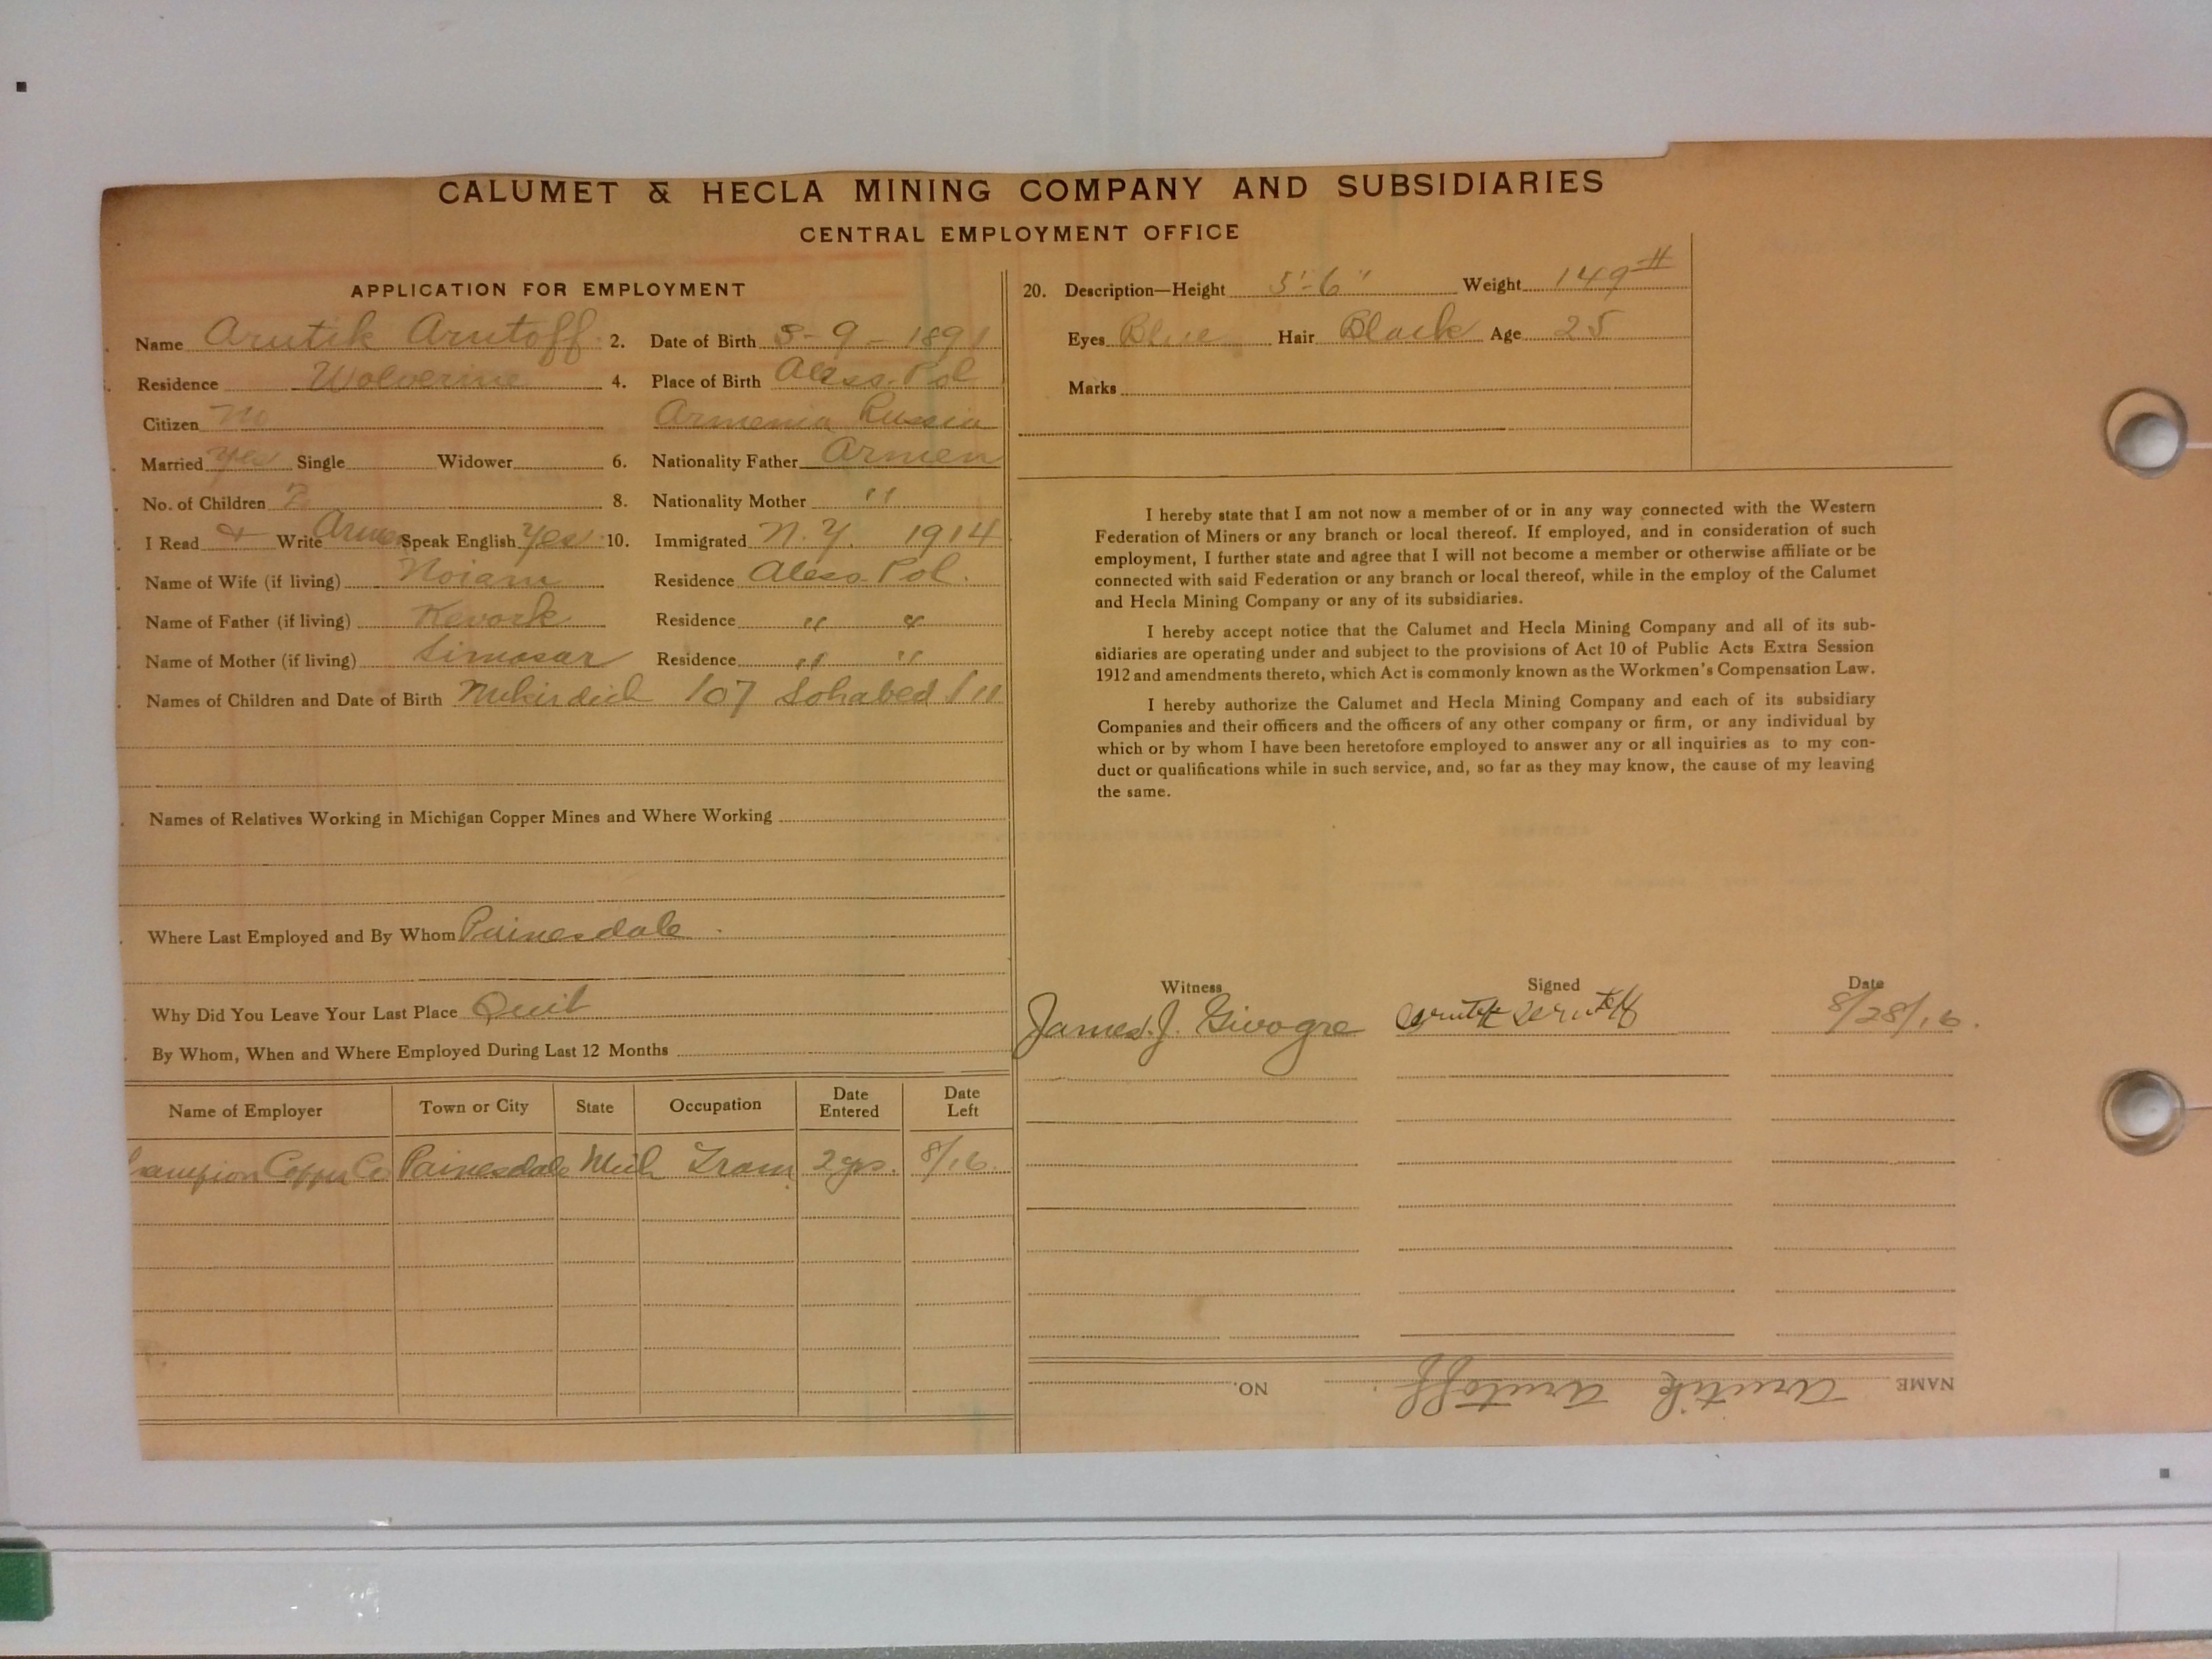 CALUMET & HECLA MINING COMPANY AND SUBSIDIARIES
CENTRAL EMPLOYMENT OFFICE
APPLICATION FOR EMPLOYMENT
Name Arutik Arutoff 2. Date of Birth 3-9-1891
Residence Wolverine 4. Place of Birth Aless. Pol
Citizen No Armenia Russia
Married yes Single Widower 6. Nationality Father Armen
No. of Children 2 8. Nationality Mother "
I Read + Write Armen Speak English Yes 10. Immigrated N.Y. 1914
Name of Wife (if living) Noiam Residence Aless. Pol.
Name of Father (if living) Kevork Residence " "
Name of Mother (if living) Simosar Residence " "
Names of Children and Date of Birth Mukirdich 107 Sohabed 111
Names of Relatives Working in Michigan Copper Mines and Where Working
Where Last Employed and By Whom Painesdale
Why Did You Leave Your Last Place Quit
By Whom, When and Where Employed During Last 12 Months
Name of Employer Town or City State Occupation Date Entered Date Left
Champion Copper Co Painesdale Mich Tram 2 yrs. 8/16.
20. Description—Height 5'-6" Weight 149#
Eyes Blue Hair Black Age 25
Marks
I hereby state that I am not now a member of or in any way connected with the Western
Federation of Miners or any branch or local thereof. If employed, and in consideration of such
employment, I further state and agree that I will not become a member or otherwise affiliate or be
connected with said Federation or any branch or local thereof, while in the employ of the Calumet
and Hecla Mining Company or any of its subsidiaries.
I hereby accept notice that the Calumet and Hecla Mining Company and all of its sub-
sidiaries are operating under and subject to the provisions of Act 10 of Public Acts Extra Session
1912 and amendments thereto, which Act is commonly known as the Workmen's Compensation Law.
I hereby authorize the Calumet and Hecla Mining Company and each of its subsidiary
Companies and their officers and the officers of any other company or firm, or any individual by
which or by whom I have been heretofore employed to answer any or all inquiries as to my con-
duct or qualifications while in such service, and, so far as they may know, the cause of my leaving
the same.
Witness Signed Date
James J. Givogre 8/28/16.
NAME Arutik Arutoff NO.